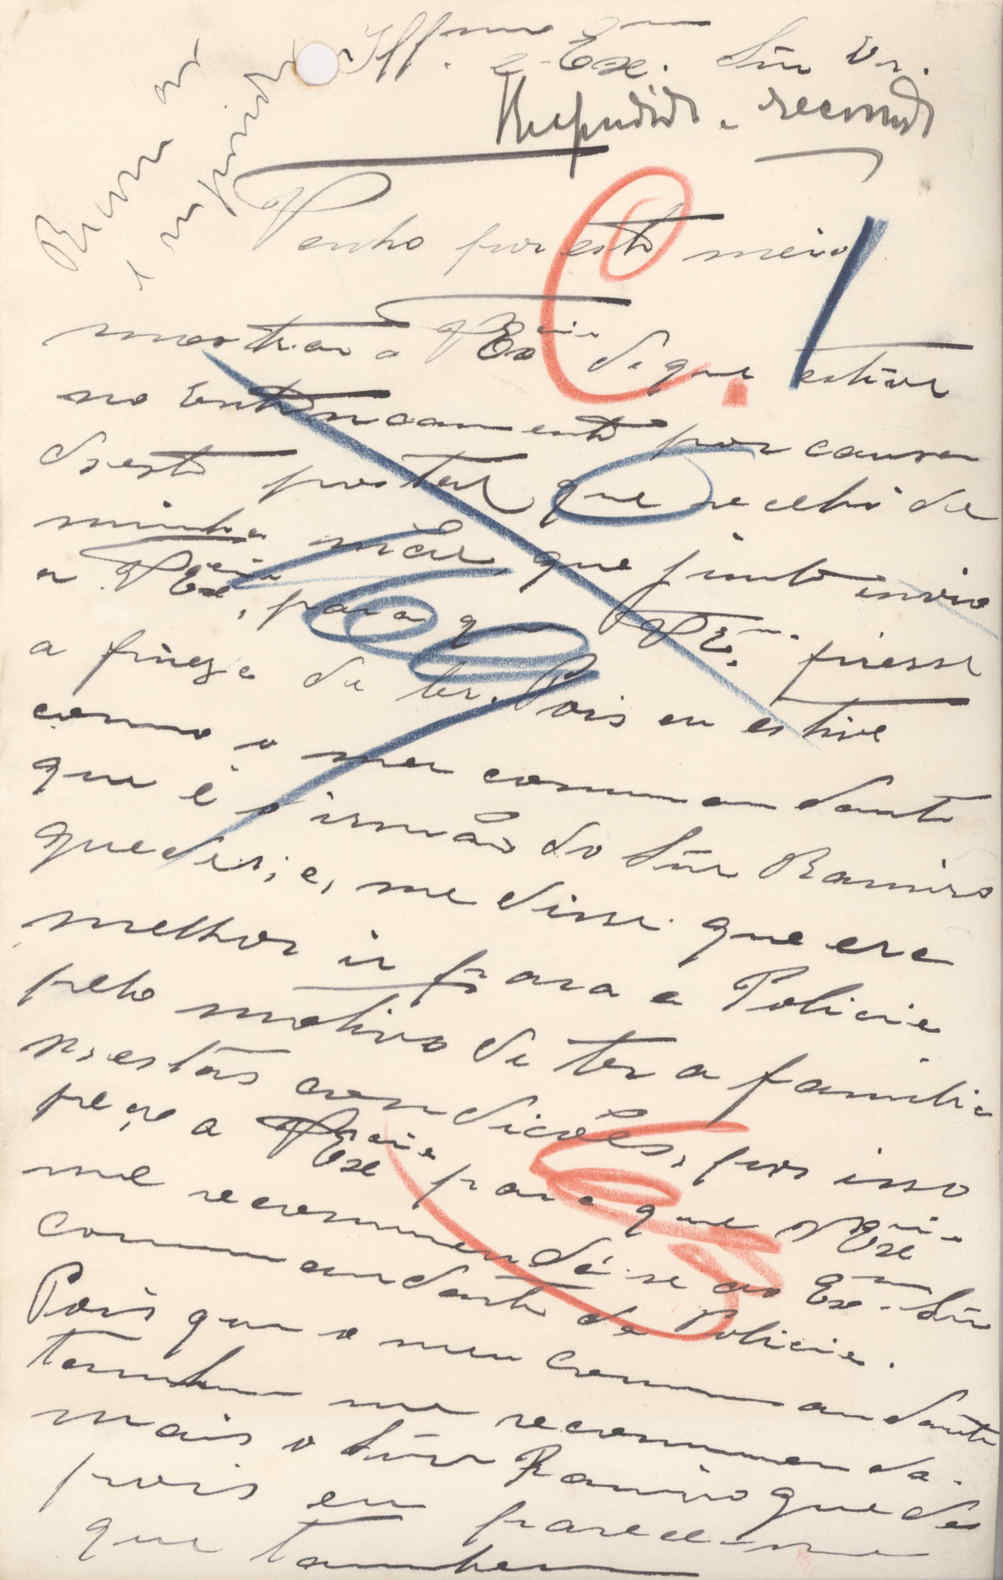 Illmo e Exmo Snr Dr.
Respondido. recomd
Venho por este meio
mostrar a VExcia de que estive
no Entroncamento por causa
desto postal que recebi de
minha mãe, que junto invio
a VExcia, para que VExa. fizesse
a fineza de ler. Pois eu estive
como o meu commandante
que é o irmão do Snr Ramiro
guedes; e, me disse que era
melhor ir para a Policia
pelo motivo de ter a familia
nestas condições, por isso
peço a VExcia para que VExcia
me recommendá-se ao Exmo Snr
commandante da Policia.
Pois que o meu Commandante
tambem me recommenda.
mais o Snr Ramiro guedes
pois eu parece-me
que tambem